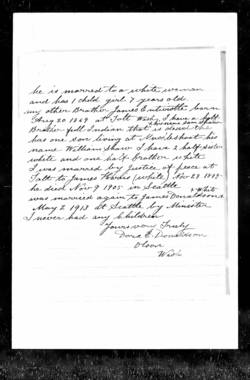 he is married to a white woman
and has 1 child girl 7 years old.
my other Brother James Entwistle born
Aug 20 1869 at Tolt Wash, I have a half
Brother full Indian that is dead he
has one son living at
name William Shaw I have 2 half sisters
white and one half brother white
I was married by Justice of peace at
Tolt to James (white) Nov 28 1889
he died Nov 9 1905 in Seattle
& White
was married again to James Donaldson
May 2 1913 at Seattle by Minister
I never had any Children
Yours very Truly
Dora E. Donaldson
Olema
Wash